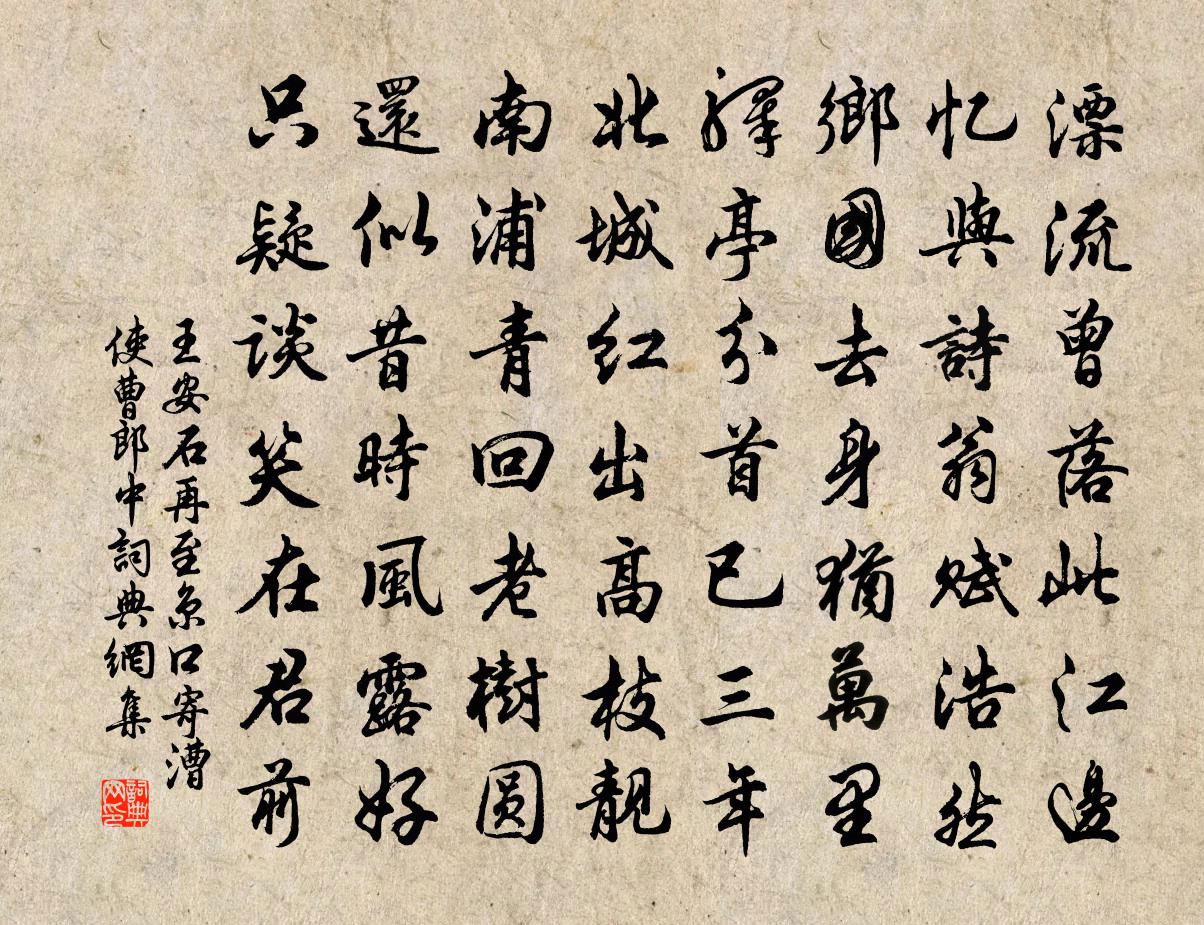 漂流曾落此江邊
忆與詩翁賦浩然
鄉國去身猶萬里
驛亭分首已三年
北城红出高枝靚
南浦青回老樹圆
還似昔時風露好
只疑談笑在君前
王安石再至京口寄漕
使曹郎中詞典網集
詞典